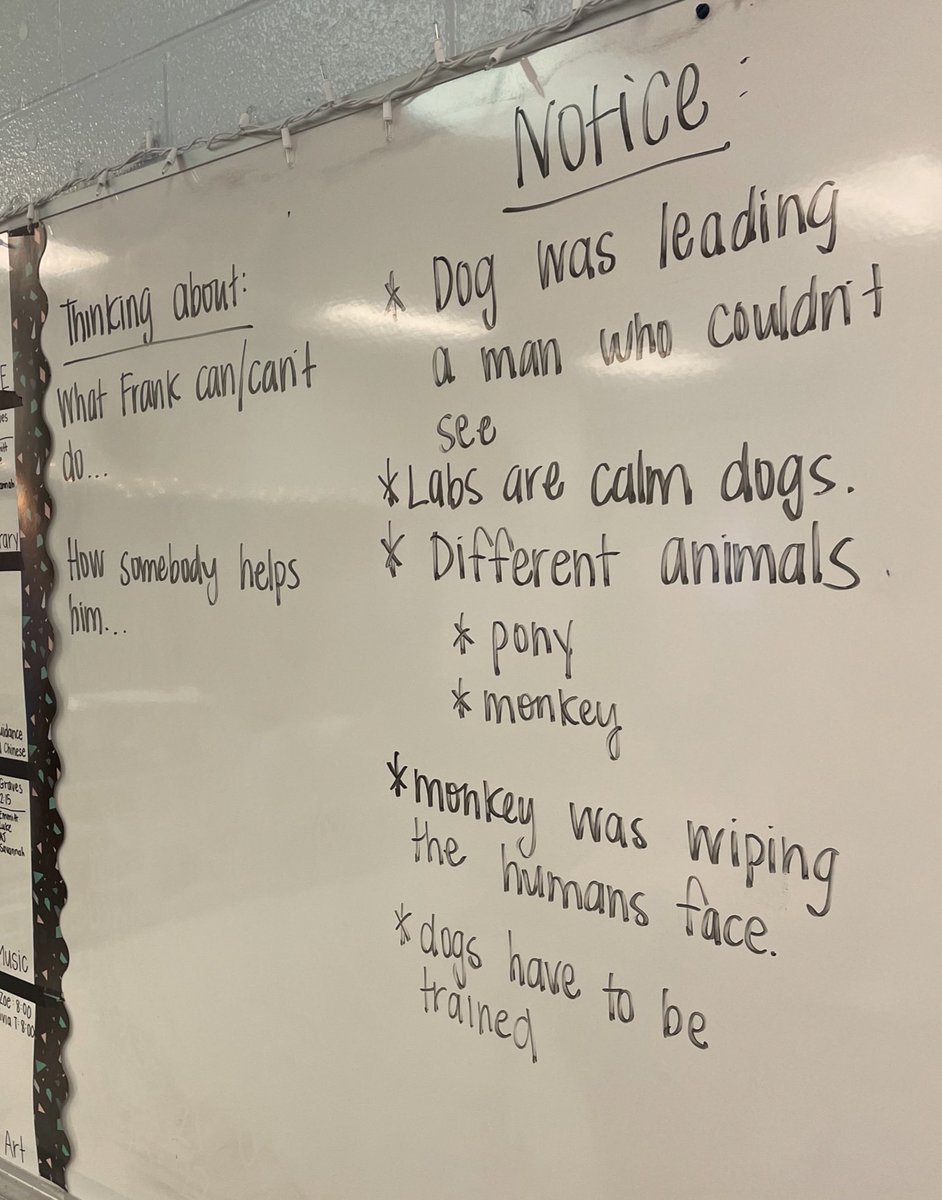 Thinking about:
What Frank can/can't
do...
How somebody helps
him...
Notice:
* Dog was leading
a man who couldn't
see
* Labs are calm dogs.
* Different animals
* pony
* monkey
* monkey was wiping
the humans face.
* dogs have to be
trained
E
rary
uidance
Chinese
Graves
2:15
Emmitt
Luke
AJ
Savannah
Music
Zoe 8:00
ivia T: 8:00
Art